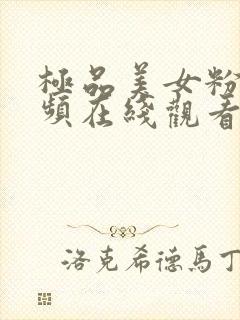 極品美女粉
頻在綫觀看
洛克希德馬丁